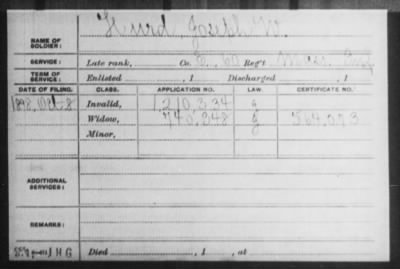 NAME OF SOLDIER: Hurd, Joseph W.
SERVICE: Late rank, Co. E, 60 Reg't Mass. Inf
TERM OF SERVICE: Enlisted , 1 Discharged , 1
DATE OF FILING. CLASS. APPLICATION NO. LAW. CERTIFICATE NO.
Invalid, 1210,334
1898, Oct. 8 Widow, 740,348 564,073
Minor,
ADDITIONAL SERVICES:
REMARKS:
Died , 1 , at